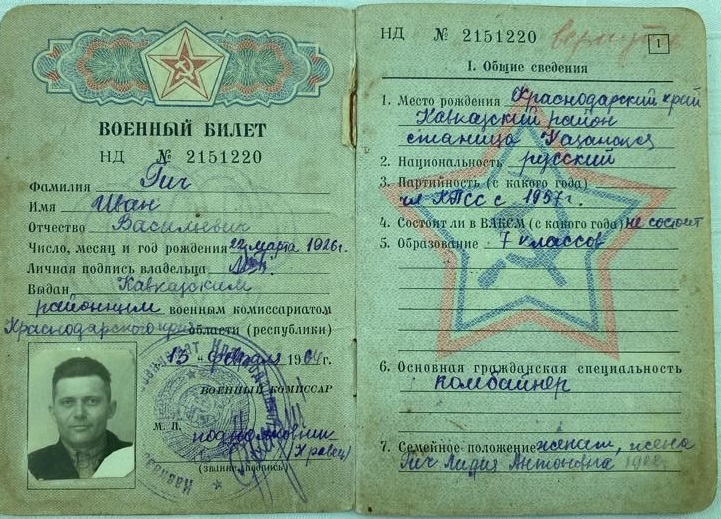 ВОЕННЫЙ БИЛЕТ
НД № 2151220
Фамилия Гич
Имя Иван
Отчество Васильевич
Число, месяц и год рождения 22 марта 1926г.
Личная подпись владельца
Выдан Кавказским
районным военным комиссариатом
Краснодарского края области (республики)
"13" февраля 1964 г.
ВОЕННЫЙ КОМИССАР
М. П.
подполковник
(Кравец)
(звание, подпись)
НД № 2151220
1
I. Общие сведения
1. Место рождения Краснодарский край
Кавказский район
станица Казанская
2. Национальность русский
3. Партийность (с какого года)
чл КПСС с 1957г.
4. Состоит ли в ВЛКСМ (с какого года) не состоит
5. Образование 7 классов
6. Основная гражданская специальность
комбайнер
7. Семейное положение женат, жена
Гич Лидия Антоновна